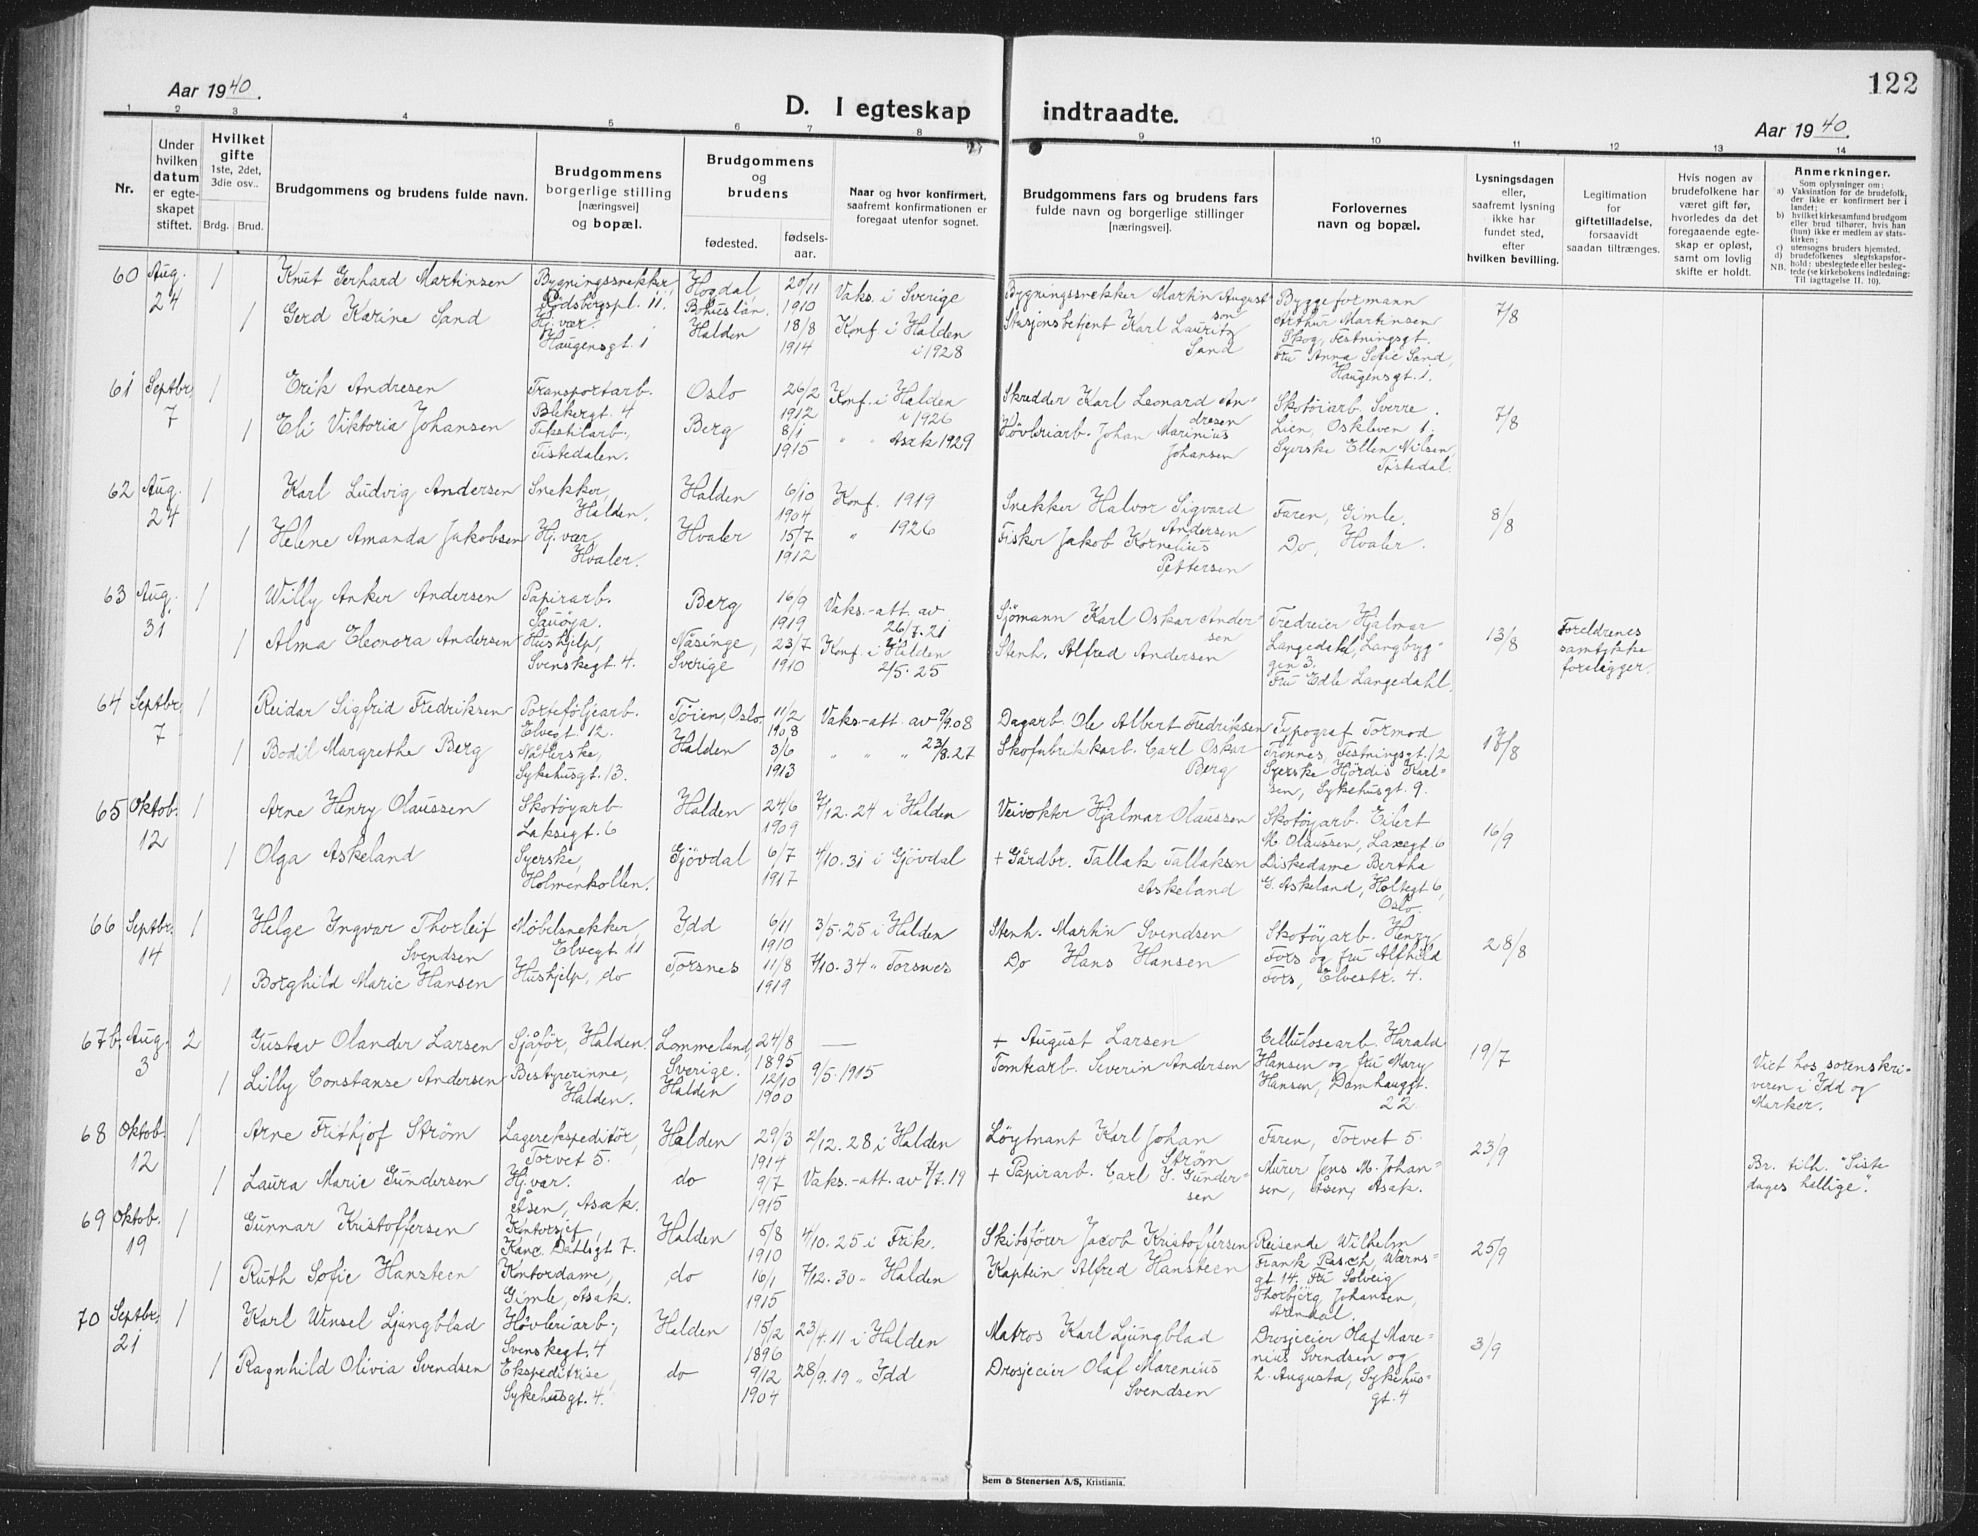 Aar 1940.
D. I egteskap indtraadte.
122
Aar 1940.
1 2 3 4 5 6 7 8 9 10 11 12 13 14
Nr.
Under hvilken datum er egteskapet stiftet.
Hvilket gifte 1ste, 2det, 3die osv..
Brdg. Brud.
Brudgommens og brudens fulde navn.
Brudgommens borgerlige stilling [næringsvei] og bopæl.
Brudgommens og brudens
fødested. fødsels-aar.
Naar og hvor konfirmert, saafremt konfirmationen er foregaat utenfor sognet.
Brudgommens fars og brudens fars fulde navn og borgerlige stillinger [næringsvei].
Forlovernes navn og bopæl.
Lysningsdagen eller, saafremt lysning ikke har fundet sted, efter hvilken bevilling.
Legitimation for giftetilladelse, forsaavidt saadan tiltrænges.
Hvis nogen av brudefolkene har været gift før, hvorledes da det foregaaende egteskap er opløst, samt om lovlig skifte er holdt.
Anmerkninger.
Som oplysninger om:
a) Vaksination for de brudefolk, der ikke er konfirmert her i landet;
b) hvilket kirkesamfund brudgom eller brud tilhører, hvis han (hun) ikke er medlem av statskirken;
c) utensogns bruders hjemsted.
d) brudefolkenes slegtskapsforhold: ubeslegtede eller beslegtede (se kirkebokens indledning:
NB. Til iagttagelse II. 10).
60 Aug. 24 1 Knut Gerhard Martinsen Bygningssnekker Rödsbergspl. 11 Hogdal Bohuslän. 20/11 1910 Vaks. i Sverige Bygningssnekker Martin August son Byggeformann Arthur Martinsen Skog, Festningsgt. 7/8
1 Gerd Karine Sand Hj.vær. Haugensgt. 1 Halden 18/8 1914 Konf. i Halden i 1928 Stasjonsbetjent Karl Lauritz Sand Fru Anna Sofie Sand, Haugensgt. 1.
61 Septbr. 7 1 Erik Andresen Transportarb. Blekergt. 4 Oslo 26/2 1912 Konf. i Halden i 1926 Skredder Karl Leonard Andresen Skotøiarb. Sverre Lien, Oskleven 1. 7/8
1 Eli Viktoria Johansen Tekstilarb. Tistedalen. Berg 8/1 1915 " " Asak 1929 Høvleriarb. Johan Marinius Johansen Syerske Ellen Nilsen, Tistedal.
62 Aug. 24 1 Karl Ludvig Andersen Snekker, Halden. Halden 6/10 1904 Konf. 1919 Snekker Halvor Sigvard Andersen Faren, Gimle. 8/8
1 Helene Amanda Jakobsen Hj.vær, Hvaler. Hvaler 15/7 1912 " 1926 Fisker Jakob Kornelius Pettersen Do, Hvaler.
63 Aug. 31 1 Willy Anker Andersen Papirarb. Sauøya. Berg 16/9 1919 Vaks.-att. av 26/7.21 Sjömann Karl Oskar Andersen Fredreier Hjalmar Langedahl, Langbryggen 3. 13/8 Foreldrenes samtykke foreligger.
1 Alma Eleonora Andersen Hushjelp, Svenskegt. 4. Näsinge, Sverige 23/7 1910 Konf. i Halden 2/5.25 Stenh. Alfred Andersen Fru Edle Langedahl.
64 Septbr. 7 1 Reidar Sigfrid Fredriksen Porteföljearb. Elvegt. 12. Töien, Oslo. 11/2 1908 Vaks.-att. av 9/9.08 Dagarb. Ole Albert Fredriksen Typograf Tormod Trönnes, Festningsgt. 12 /8
1 Bodil Margrethe Berg Nåtlerske, Sykehusgt. 13. Halden 3/6 1913 " " " 23/8.27 Skofabrikkarb. Carl Oskar Berg Syerske Hjördis Karlsen, Sykehusgt. 9.
65 Oktob. 12 1 Arne Henry Olaussen Skotøyarb. Laksegt. 6 Halden 24/6 1909 7/12.24 i Halden Veivokter Hjalmar Olaussen Skotøyarb. Eilert M Olaussen, Laxegt. 6 16/9
1 Olga Askeland Syerske, Holmenkollen. Gjövdal 6/7 1917 4/10.31 i Gjövdal + Gårdbr. Tallak Tallaksen Askeland Diskedame Bertha G. Askeland, Holtegt 6, Oslo.
66 Septbr. 14 1 Helge Ingvar Thorleif Svendsen Møbelsnekker, Elvegt. 11 Idd 6/11 1910 3/5.25 i Halden Stenh. Martin Svendsen Skotøyarb. Henry Fors og fru Alfhild Fors, Elvestr. 4. 28/8
1 Borghild Marie Hansen Hushjelp, do Torsnes 11/8 1919 7/10.34 " Torsnes Do Hans Hansen
67b. Aug. 3 2 Gustav Olander Larsen Sjåför, Halden. Lommeland, Sverige. 24/8 1895 — + August Larsen Cellulosearb. Harald Hansen og fru Mary Hansen, Damhaugt. 22. 19/7 Viet hos sorenskriveren i Idd og Marker.
1 Lilly Constanse Andersen Bestyrerinne, Halden. Halden 12/10 1900 9/5.1915 Tomtearb. Severin Andersen
68 Oktob. 12 1 Arne Frithjof Strøm Lagerekspeditör, Torvet 5. Halden 29/3 1914 2/12.28 i Halden Löytnant Karl Johan Strøm Faren, Torvet 5. 23/9
1 Laura Marie Gundersen Hj.vær. Åsen, Asak. do 9/7 1915 Vaks.-att. av 7/7.19 + Papirarb. Carl J. Gundersen Murer Jens M. Johansen, Åsen, Asak. Br. tilh. "Siste dages hellige".
69 Oktob. 19 1 Gunnar Kristoffersen Kontorsjef, Kane. Dahlsgt 7. Halden 5/8 1910 4/10.25 i Frik. Skibsfører Jacob Kristoffersen Reisende Wilhelm Frank Rasch, Wærnsgt. 14. 25/9
1 Ruth Sofie Hansteen Kontordame, Gimle, Asak. do 16/1 1915 7/12.30 " Halden Kaptein Alfred Hansteen Fru Solveig Thorbjörg Johansen, Arendal.
70 Septbr. 21 1 Karl Wensel Ljungblad Høvleriarb., Svenskegt. 4 Halden 15/2 1896 23/4.11 i Halden Matros Karl Ljungblad Drosjeeier Olaf Marenius Svendsen og 3/9
1 Ragnhild Olivia Svendsen Ekspeditrise, Sykehusgt. 4. do 9/12 1904 28/9.19 " Idd Drosjeeier Olaf Marenius Svendsen L. Augusta, Sykehusgt. 4
Sem & Stenersen A/S, Kristiania.